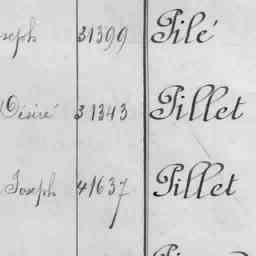 seph 31399 Pilé
Désiré 31343 Pillet
Joseph 41637 Pillet